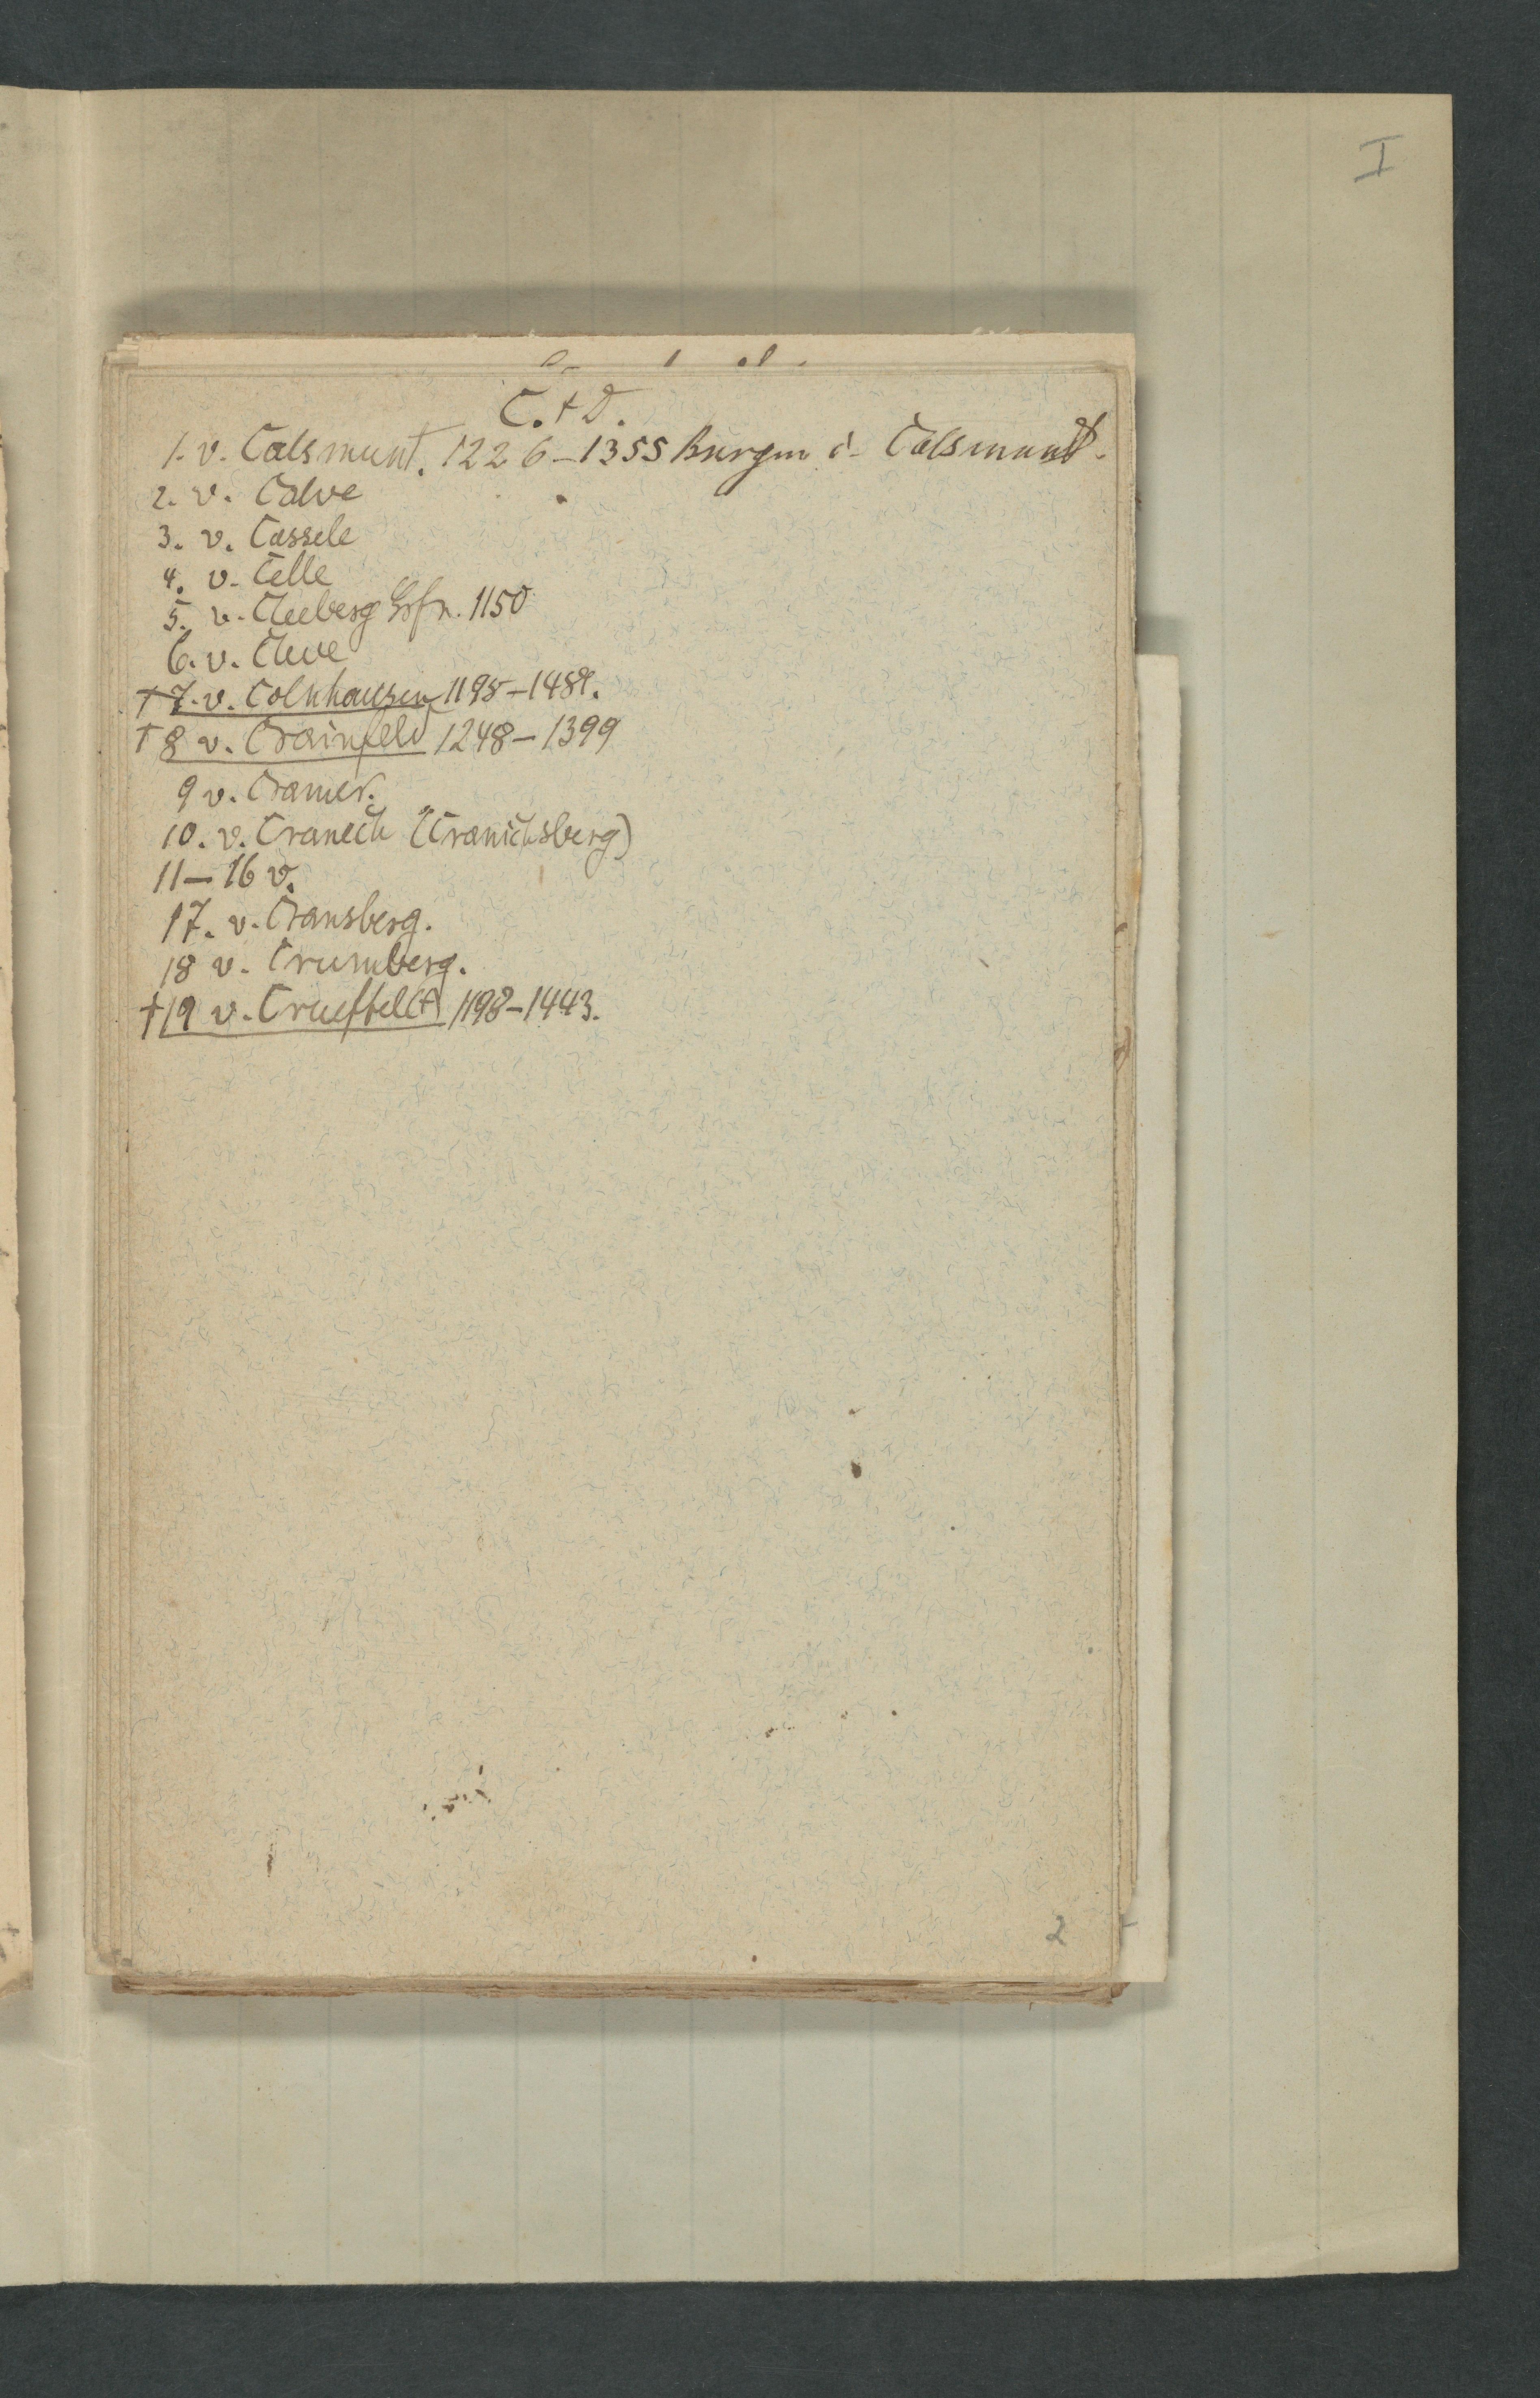 I
C. + D.
1. v. Calsmunt. 1226-1355 Burgm i- Calsmunt.
2. v. Calve
3. v. Cassele
4. v. Celle
5. v. Cleeberg Grfn. 1150
6. v. Cleve
† 7. v. Colnhausen 1195-1489.
† 8 v. Crainfeld 1248-1399
9 v. Cramer.
10. v. Cranech (Cranichsberg)
11-16 v.
17. v. Cransberg.
18 v. Crumberg.
† 19 v. 1198-1443.
2